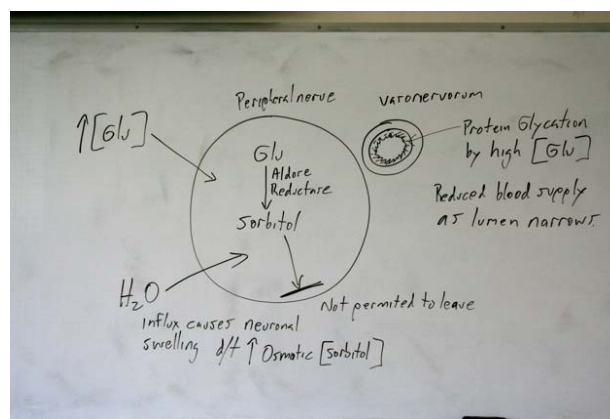 Peripheral nerve
vasonervorum
↑[Glu]
Glu
Aldose
Reductase
Sorbitol
Protein Glycation
by high [Glu]
Reduced blood supply
as lumen narrows.
H₂O
Not permited to leave
Influx causes neuronal
swelling d/t ↑ Osmotic [sorbitol]